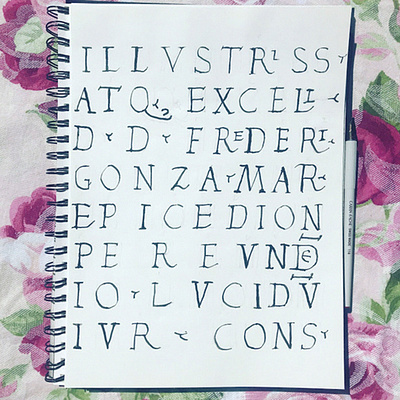 ILLVSTRISS
ATQ EXCELL
D D FREDERI
GONZA MAR
EPICEDION
PER EVNDE
IO LVCIDV
IVR CONS